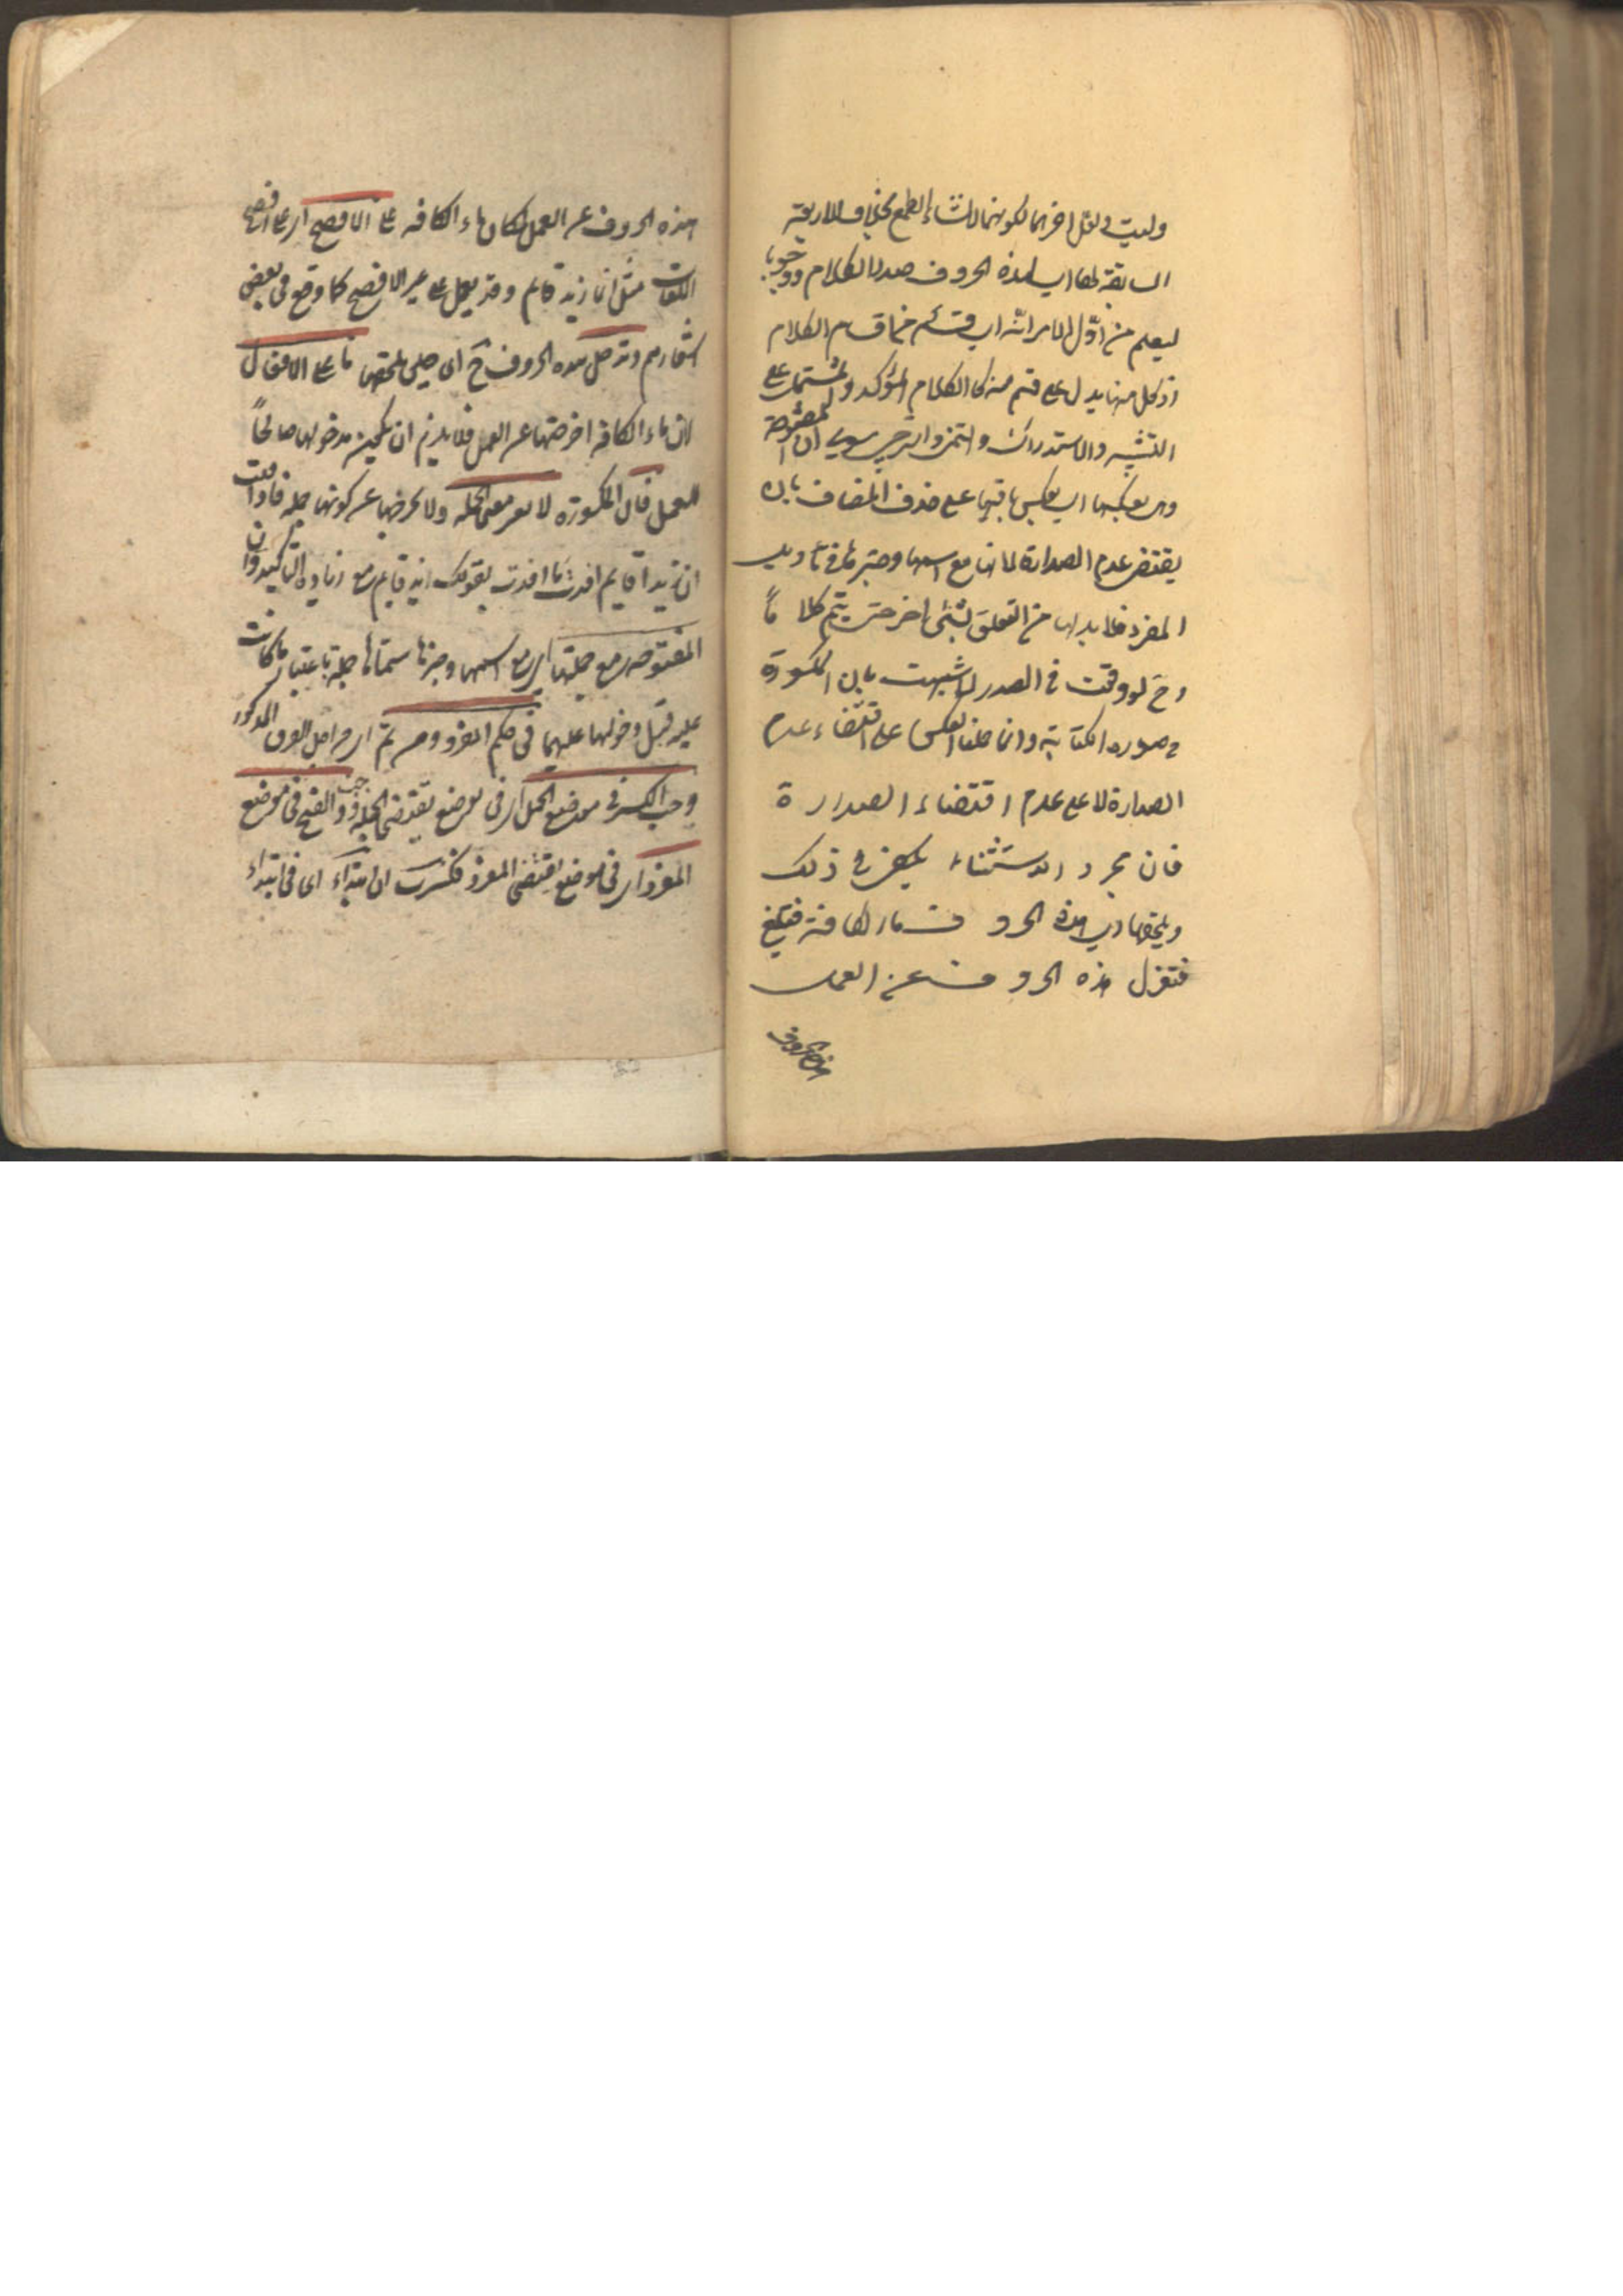 وليت ولعل اخرهما لكونهما لانشاء الطمع بخلاف الاربعة
السابقة لها اي لهذه الحروف صدر الكلام وجوبا
ليعلم من اول الامر انه اي قسم من اقسام الكلام
اذ كل منها يدل على قسم منه كالكلام المؤكد والمشتمل على
التشبيه والاستدراك والتمني والترجي سوى ان المفتوحة
وهي بعكسها اي بعكس باقيها على حذف المضاف بان
يقتضي عدم الصدارة لانها مع اسمها وخبرها في تأويل
المفرد فلا بد لها من التعلق بشيء اخر حتى يتم كلاماً
وح لو وقعت في الصدر اشتبهت بان المكسورة
في صورة الكتابة وانما حملنا العكس على اقتضاء عدم
الصدارة لا على عدم اقتضاء الصدارة
فان مجرد الاستثناء يكفي في ذلك
ويلحقها اي هذه الحروف ما الكافة فتلغى
فتعزل هذه الحروف عن العمل
هذه الحروف
هذه الحروف عن العمل لمكان ماء الكافه على الافصح اي على افصح
اللغات مثل انما زيد قايم وقد يعمل على غير الافصح كما وقع في بعض
اشعارهم وتدخل هذه الحروف ح اي حين يلحقها ما على الافعال
لان ماء الكافه اخرجتها عن العمل فلا يلزم ان يكون مدخولها صالحاً
للعمل فان المكسورة لا تغير معنى الجمله ولا تخرجها عن كونها جمله فاذا قلت
ان زيدا قايم افدت ما افدت بقولك زيد قايم مع زيادة التاكيد وان
المفتوحه مع جملتها اي مع اسمها وخبرها سماها جملة باعتبار ما كانت
عليه قبل دخولها عليهما في حكم المفرد ومن ثم اي من اجل الفرق المذكور
وجب الكسر في موضع الجمل اي في موضع يقتضي الجملة ووجب الفتح في موضع
المفرد اي في موضع اقتضى المفرد فكسرت ان ابتداء اى فى ابتداء